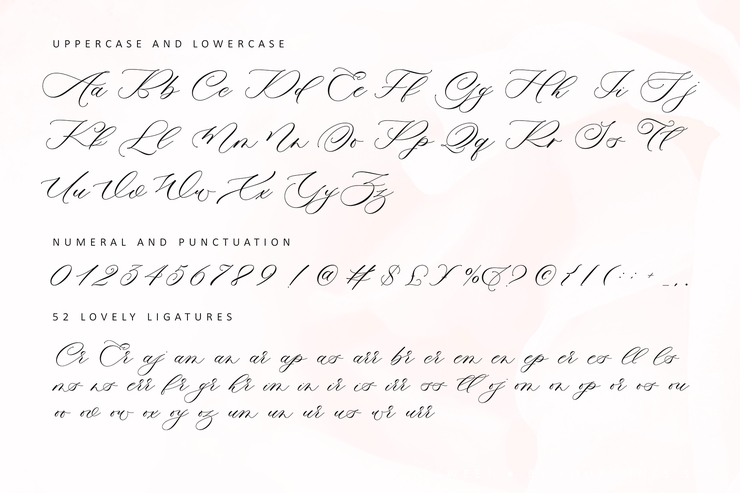 UPPERCASE AND LOWERCASE
Aa Bb Cc Dd Ee Ff Gg Hh Ii Jj
Kk Ll Mm Nn Oo Pp Qq Rr Ss Tt
Uu Vv Ww Xx Yy Zz
NUMERAL AND PUNCTUATION
0 1 2 3 4 5 6 7 8 9 ! @ # $ £ ¥ % & ? © { / ( : ; + _ . ,
52 LOVELY LIGATURES
Cr Er aj am an ar ap as arr br er em en ep er es ll ls
ms ns err fr gr kr im in ir is irr ss tt oj om on op or os ou
oo od ow ox oy oz um un ur us wr urr